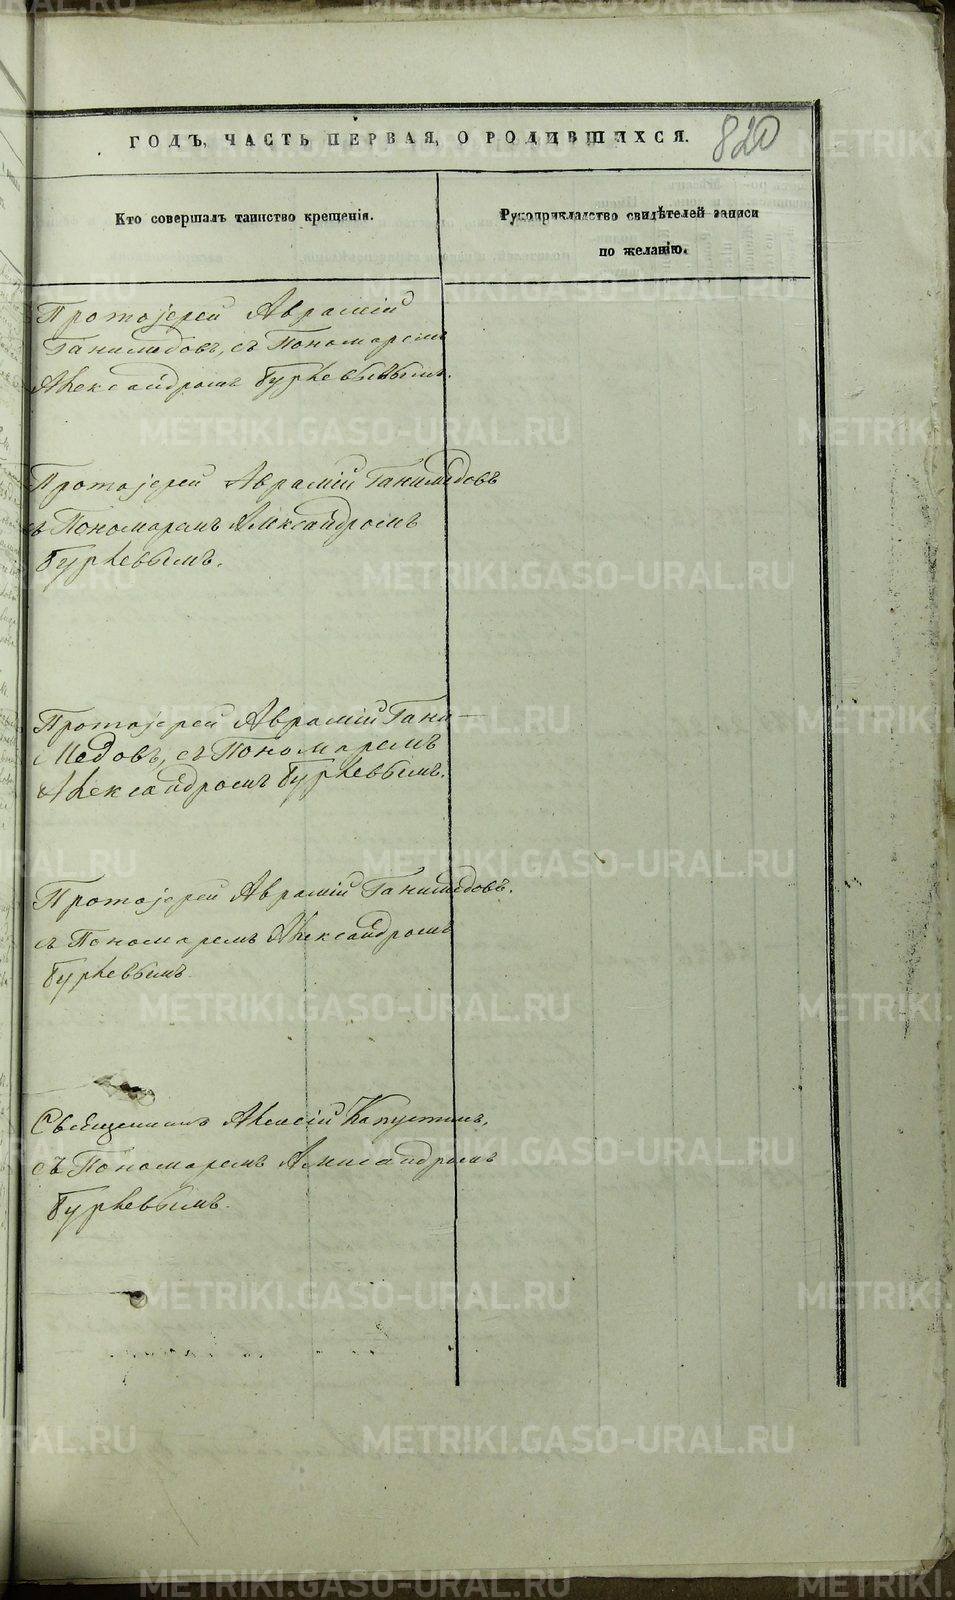 ГОДЪ, ЧАСТЬ ПЕРВАЯ, О РОДИВШИХСЯ. 820
Кто совершалъ таинство крещенія.
Рукоприкладство свидѣтелей записи
по желанію.
Протоіерей Аврамій
Ганимедовъ, съ Пономаремъ
Александромъ Гурьевымъ.
Протоіерей Аврамій Ганимедовъ
съ Пономаремъ Александромъ
Гурьевымъ.
Протоіерей Аврамій Гани-
медовъ, съ Пономаремъ
Александромъ Гурьевымъ.
Протоіерей Аврамій Ганимедовъ.
съ Пономаремъ Александромъ
Гурьевымъ
Священникъ Алексій Капустинъ,
съ Пономаремъ Александромъ
Гурьевымъ.
METRIKI.GASO-URAL.RU